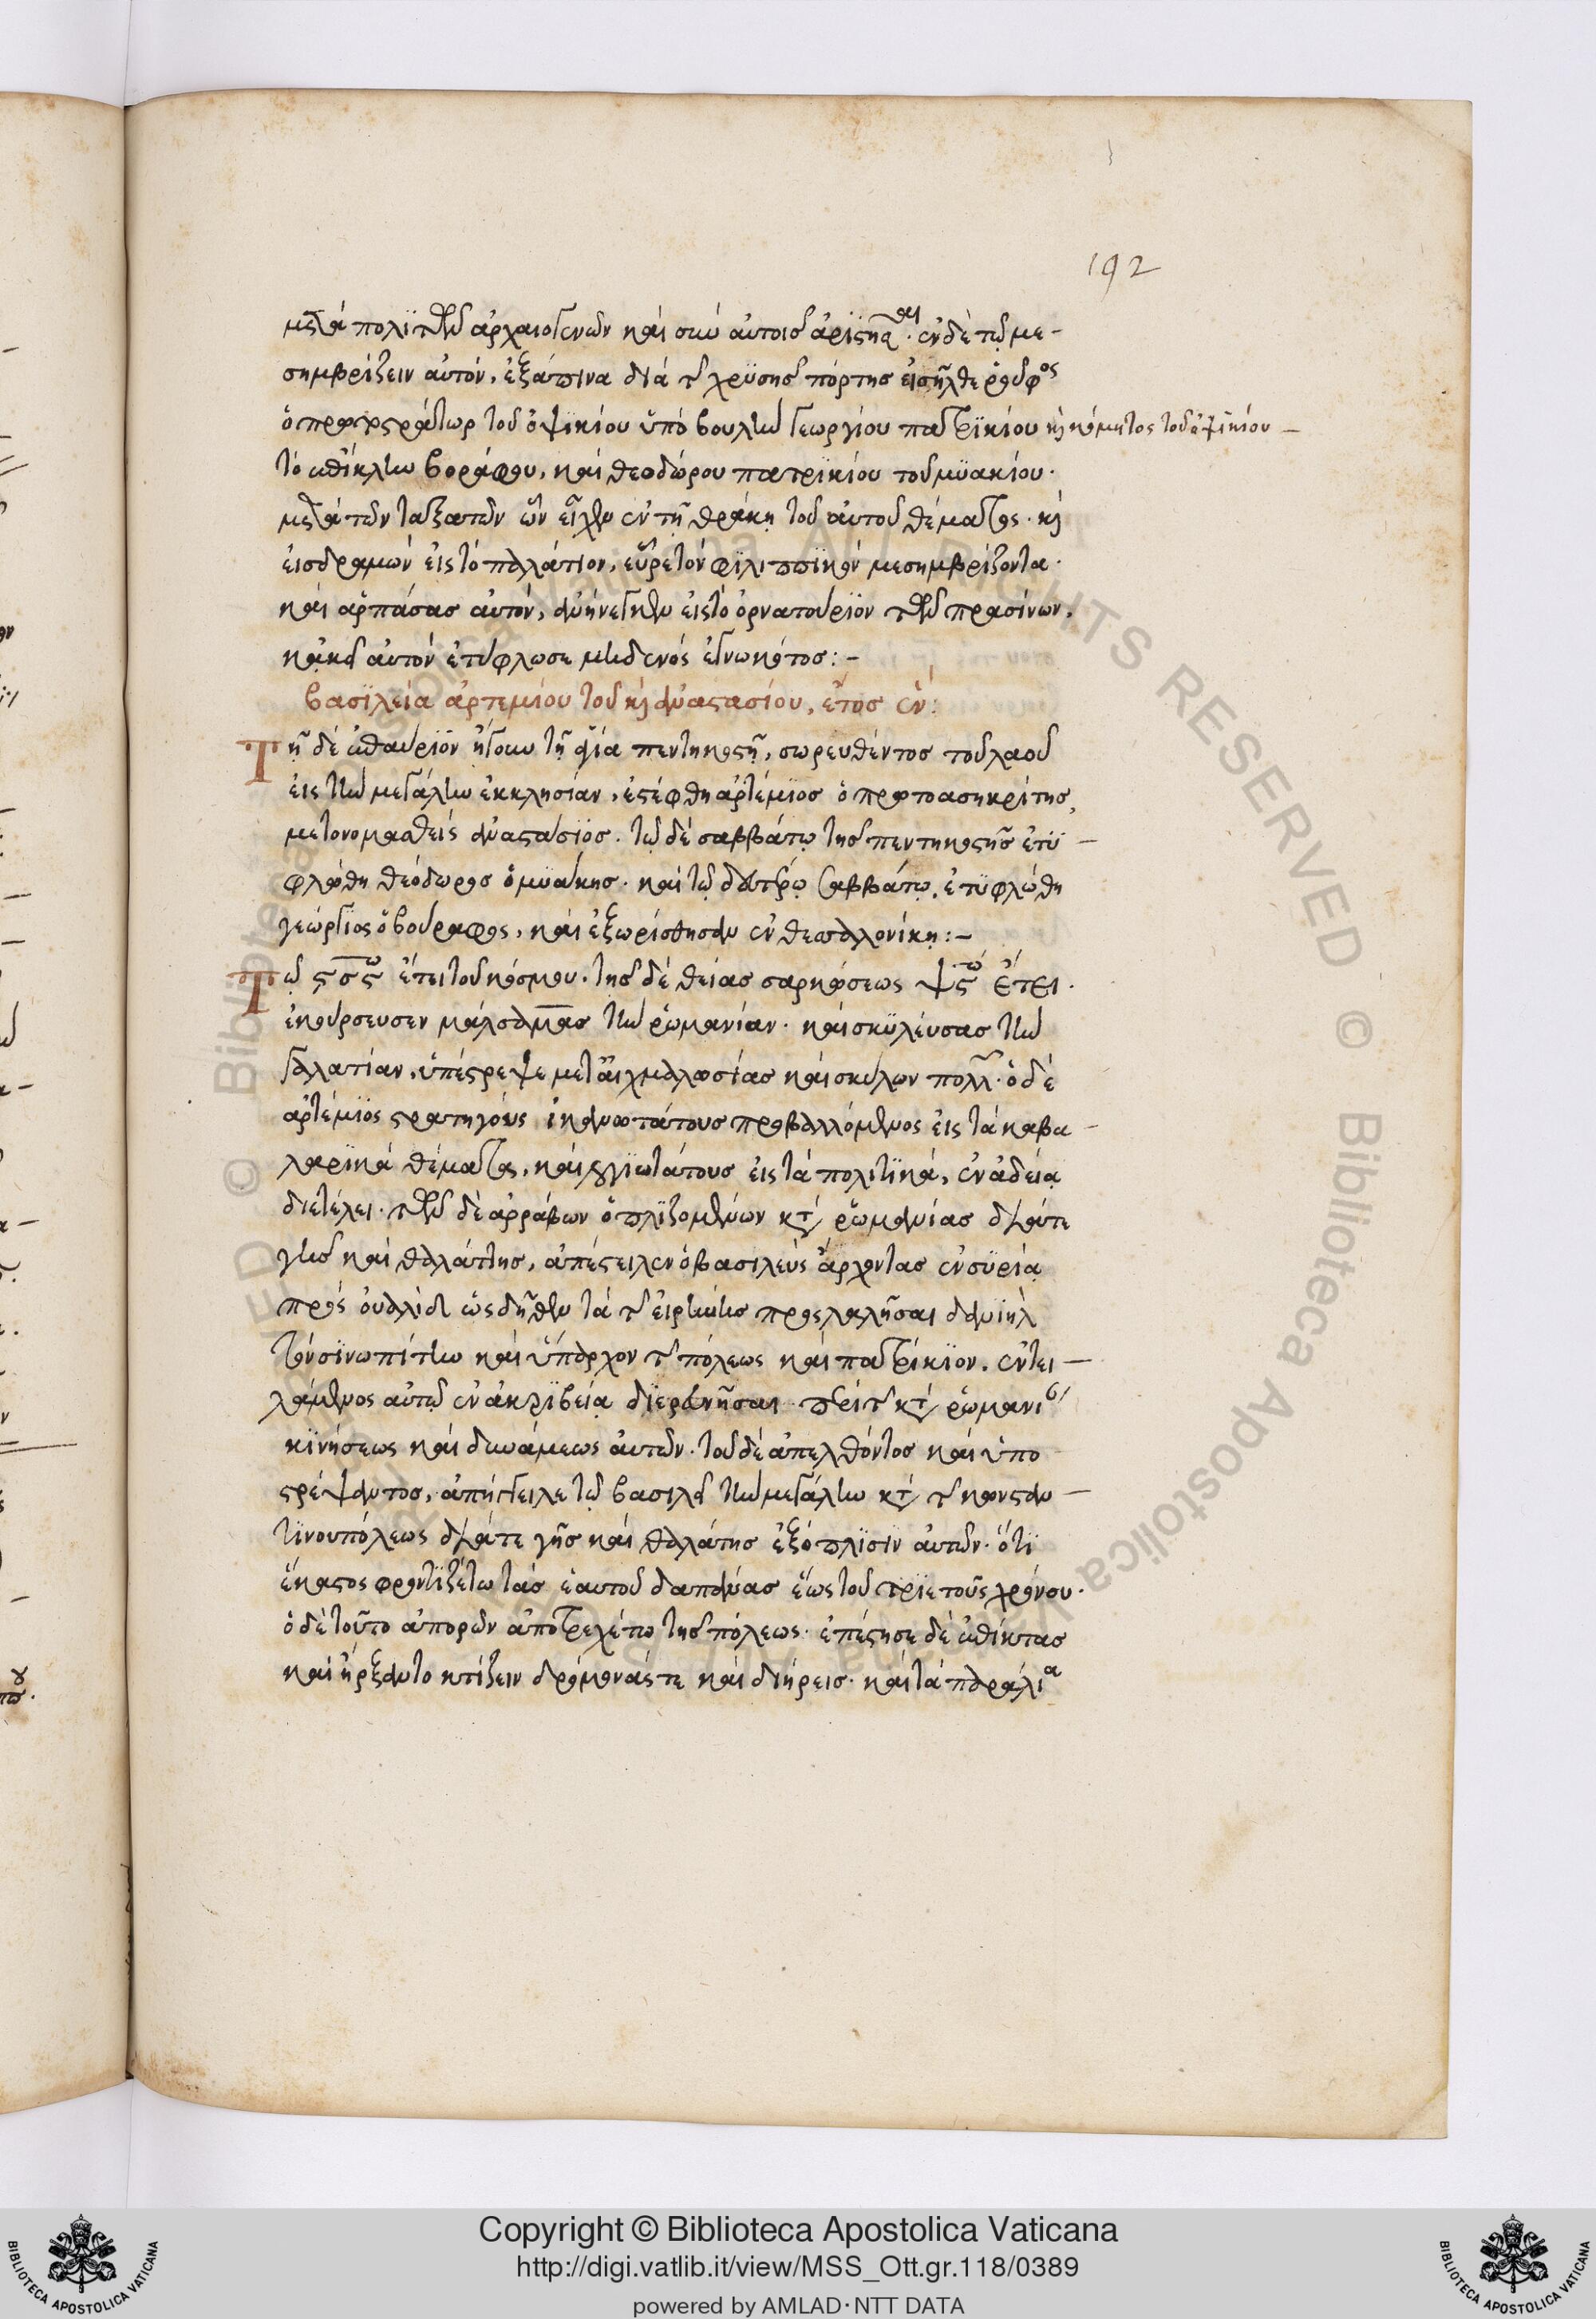 192
μετὰ πολιτῶν ἀρχαιογενῶν καὶ σὺν αὐτοῖσ ἀριστῆσαι· ἐν δὲ τῷ με-
σημβρίζειν αὐτόν, ἐξάπινα διὰ τῆς χρυσῆσ πόρτησ εἰσῆλθε ροῦφος
ὁ πρωτοστράτωρ τοῦ ὀψικίου ὑπὸ βουλὴν γεωργίου πατρικίου κὶ κόμητος τοῦ ὀψικίου -
τὸ ἐπίκλην βοράφου, καὶ θεοδώρου πατρικίου τοῦ μυακίου·
μετὰ τῶν ταξατῶν ὧν εἶχεν ἐν τῇ θράκῃ τοῦ αὐτοῦ θέματος· κὶ
εἰσδραμὼν εἰς τὸ παλάτιον, εὗρε τὸν φιλιππικὸν μεσημβρίζοντα·
καὶ ἁρπάσασ αὐτόν, ἀνήνεγκεν εἰς τὸ ὀρνατούριον τῶν πρασίνων,
κἀκεῖ αὐτὸν ἐτύφλωσε μηδενὸς ἐγνωκότοσ:-
βασιλεία ἀρτεμίου τοῦ κὶ ἀναστασίου, ἔτοσ ἕν:
Τῇ δὲ ἐπαύριον ἤγουν τῇ ἁγία πεντηκοστῇ, σωρευθέντοσ τοῦ λαοῦ
εἰς τὴν μεγάλην ἐκκλησίαν, ἐστέφθη ἀρτέμιος ὁ πρωτοασηκρίτησ,
μετονομασθεὶς ἀναστάσιος. τῷ δὲ σαββάτῳ τῆσ πεντηκοστῆσ ἐτυ-
φλώθη θεόδωροσ ὁ μυάκησ· καὶ τῷ δευτέρῳ σαββάτῳ, ἐτυφλώθη
γεώργιος ὁ βούραφος, καὶ ἐξωρίσθησαν ἐν θεσσαλονίκῃ:-
Τῷ ϛσϛῷ ἔτει τοῦ κόσμου, τῆσ δὲ θείασ σαρκώσεως ψϛῷ ἔτει.
ἐκούρσευσεν μάλσαλμασ τὴν ῥωμανίαν· καὶ σκυλεύσασ τὴν
γαλατίαν, ὑπέστρεψε μετ αἰχμαλωσίασ καὶ σκύλων πολλῶν· ὁ δὲ
ἀρτέμιος στρατηγοὺς ἱκανωτάτουσ προβαλλόμενος εἰς τὰ καβα-
λαρικὰ θέματα, καὶ λογιωτάτουσ εἰς τὰ πολιτικά, ἐν ἀδείᾳ
διετέλει. τῶν δὲ ἀρράβων ὁπλιζομένων κατὰ ῥωμανίασ διά τε
γῆσ καὶ θαλάττησ, ἀπέστειλεν ὁ βασιλεὺς ἄρχοντασ ἐν συρίᾳ
πρὸς οὐαλὶδ ὡς δῆθεν τὰ τῆς εἰρήνησ προσλαλῆσαι δανιὴλ
τὸν σινωπίτην καὶ ὕπαρχον τῆς πόλεως καὶ πατρίκιον, ἐντει-
λάμενος αὐτῷ ἐν ἀκριβείᾳ διερευνῆσαι περὶ τῆς κατὰ ῥωμανίας
κινήσεως καὶ δυνάμεως αὐτῶν. τοῦ δὲ ἀπελθόντος καὶ ὑπο
στρέψαντοσ, ἀπήγγειλε τῷ βασιλεῖ τὴν μεγάλην κατὰ τῆς κωνσταν-
τινουπόλεως διά τε γῆσ καὶ θαλάττησ ἐξόπλισιν αὐτῶν. ὅτι
ἕκαστος φροντιζέτω τὰσ ἑαυτοῦ δαπάνασ ἕως τοῦ τριετοῦς χρόνου.
ὁ δὲ τοῦτο ἀπορῶν ἀποτρεχέτω τῆσ πόλεως. ἐπέστησε δὲ ἐπίκτασ
καὶ ἤρξαντο κτίζειν δρόμωνάς τε καὶ διήρεισ· καὶ τὰ παράλια
Copyright © Biblioteca Apostolica Vaticana
http://digi.vatlib.it/view/MSS_Ott.gr.118/0389
powered by AMLAD·NTT DATA